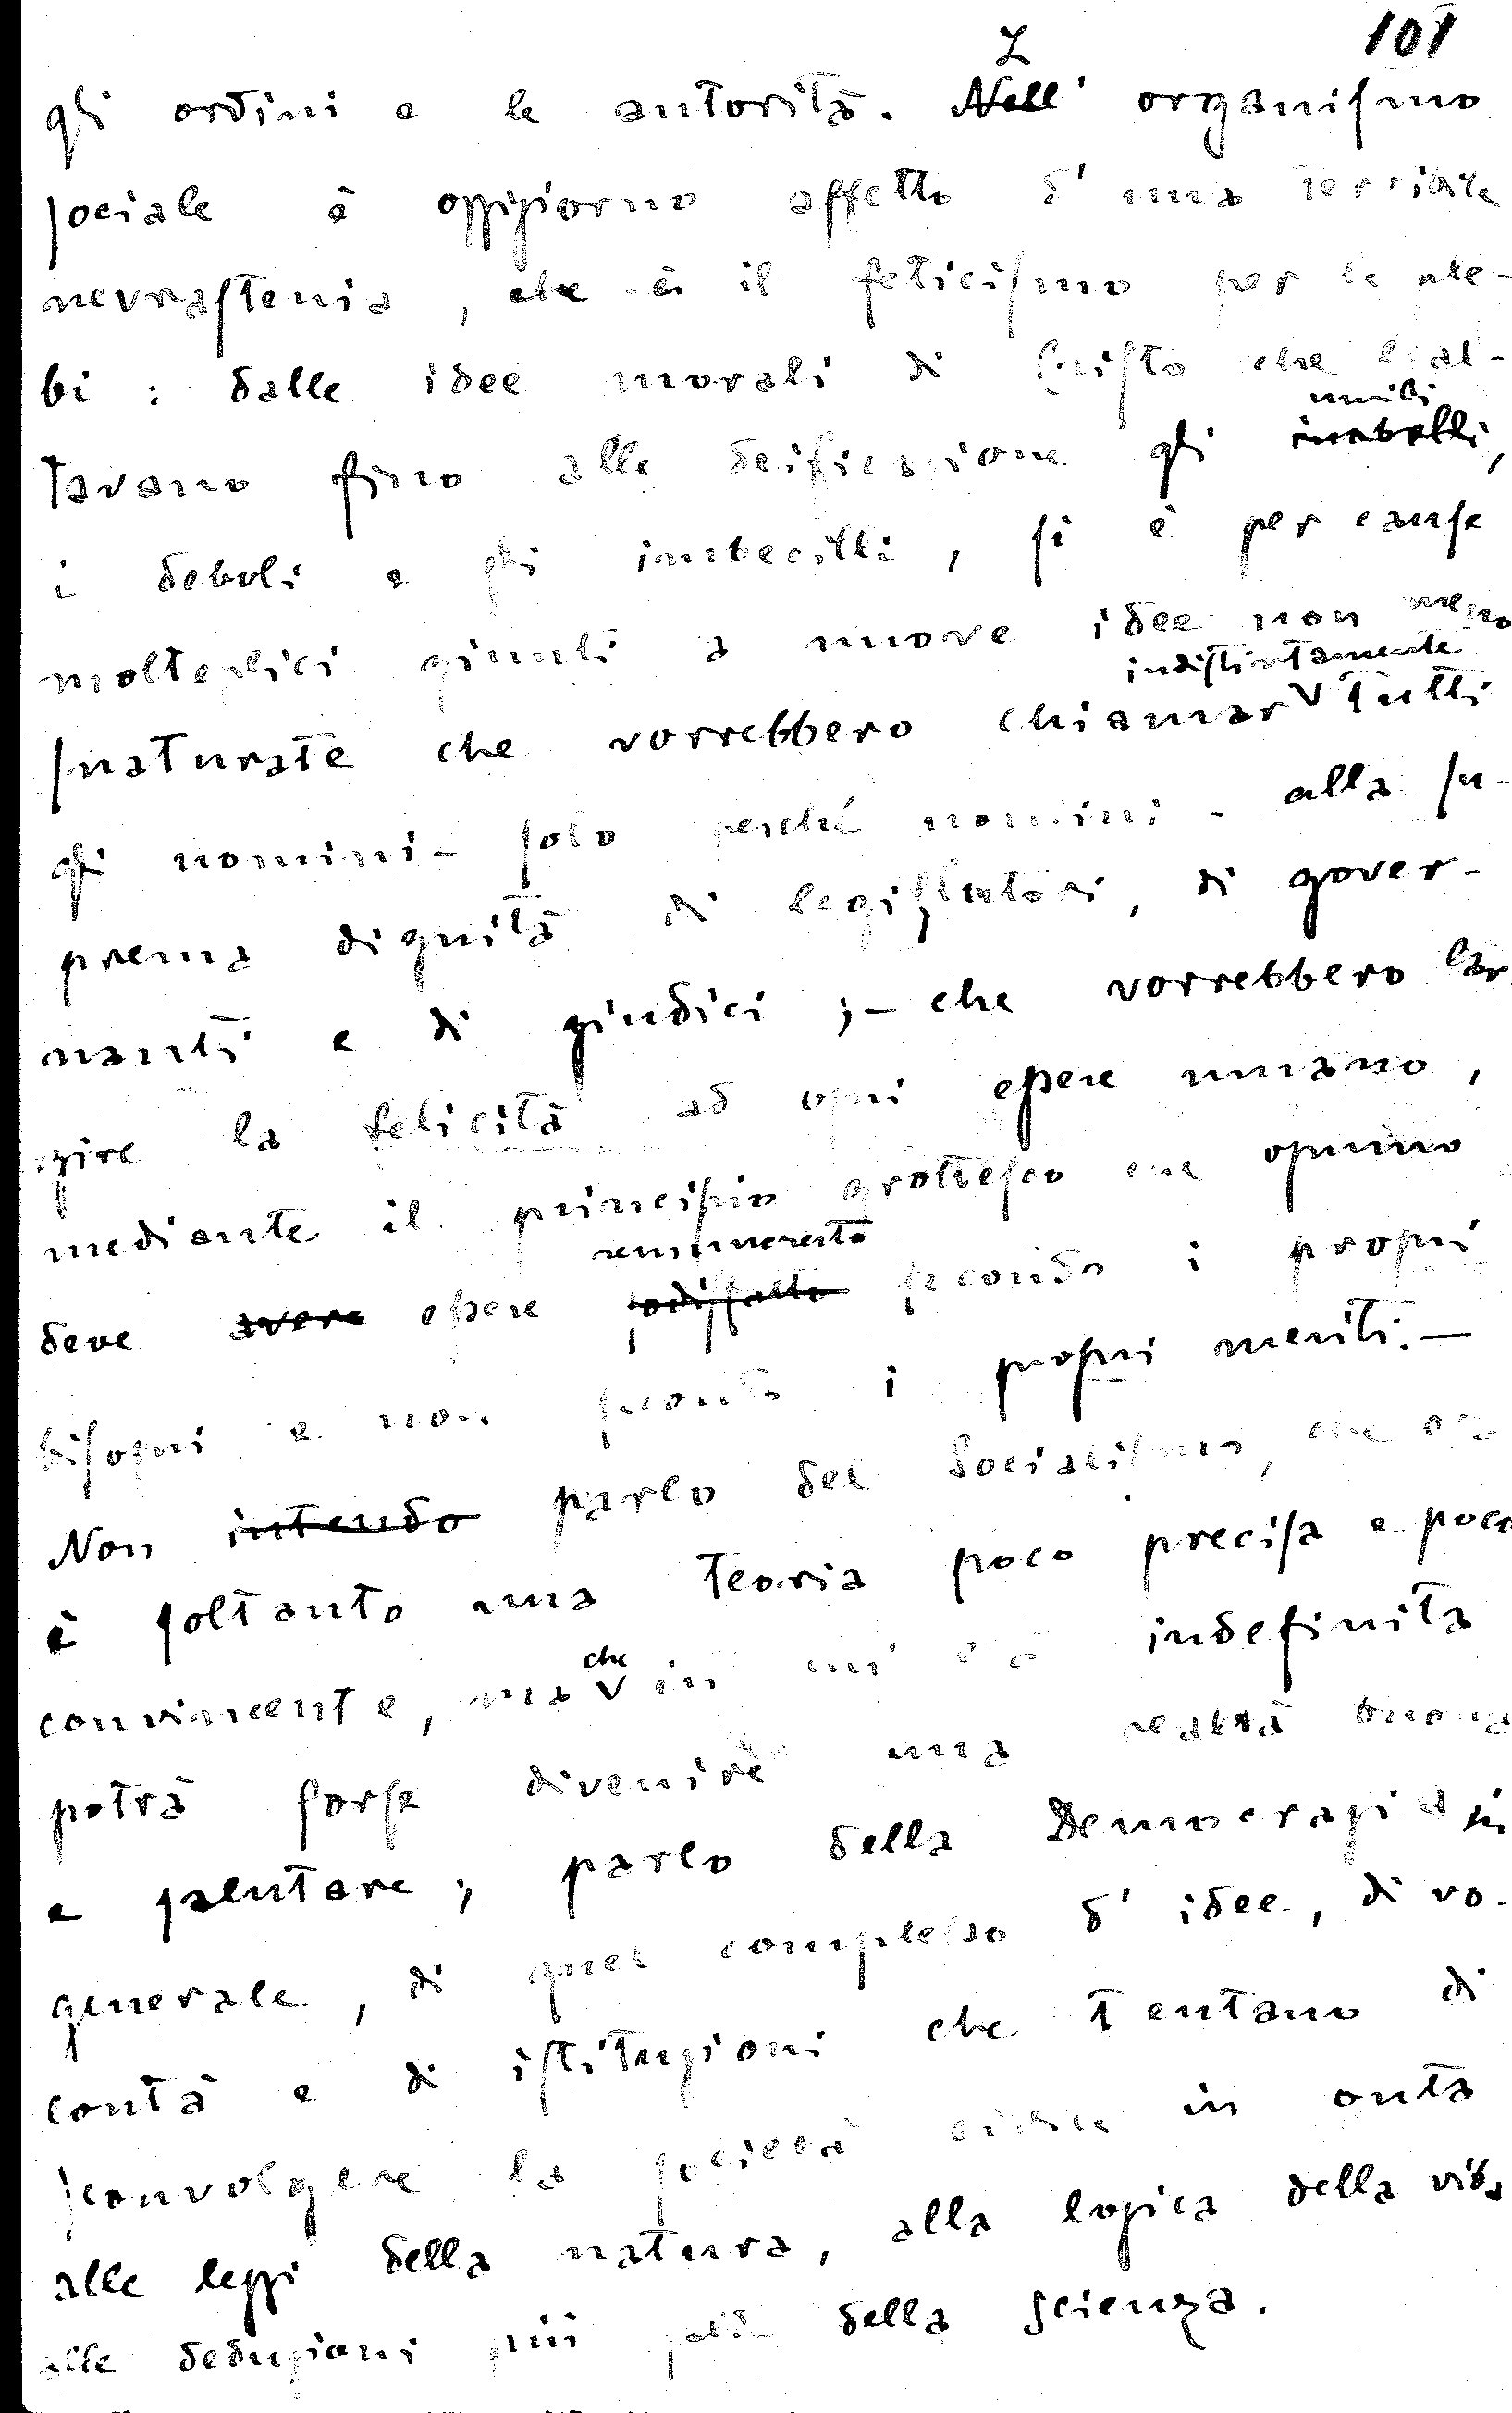 101
gli ordini e le autorità. L' organismo
sociale è oggigiorno affetto d' una terribile
nevrastenia, che è il feticismo per le ple-
bi : dalle idee morali di Cristo che esal-
tavano fino alla deificazione gli umili,
i deboli e gli imbecilli, si è per cause
molteplici giunti a nuove idee non meno
snaturate che vorrebbero chiamar indistintamente tutti
gli uomini - solo perché uomini - alla su-
prema dignità di legislatori, di gover-
nanti e di giudici ; - che vorrebbero lar
gire la felicità ad ogni essere umano,
mediante il principio grottesco che ognuno
deve avere essere remunerato secondo i propri
bisogni e non secondo i propri meriti. -
Non intendo parlo del Socialismo, che
è soltanto una teoria poco precisa e poco
convincente, ma che in un' indefinita
potrà forse divenire una realtà buona
e salutare ; parlo della Democrazia in
generale, di quel complesso d' idee, di vo-
lontà e di istituzioni che tentano di
sconvolgere la società in onta
alle leggi della natura, alla logica della vita
alle deduzioni più della scienza.